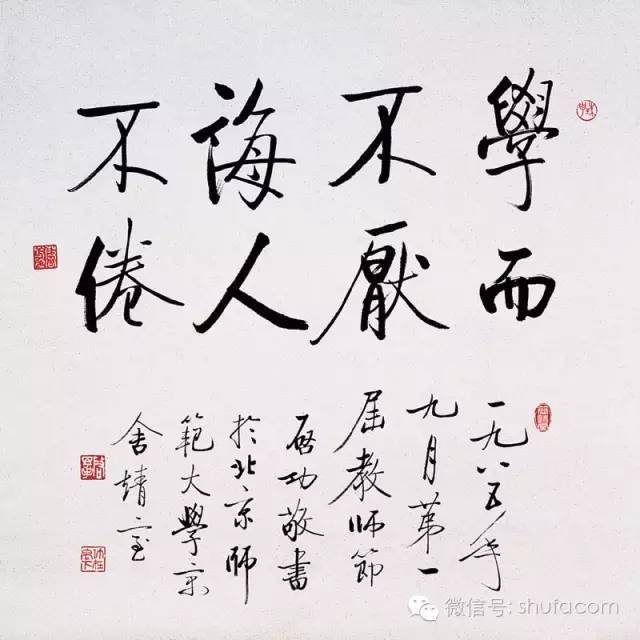 學而
不厭
誨人
不倦
一九八五年
九月第一
届教師節
啟功敬書
於北京師
範大學
舍
微信号: shufacom